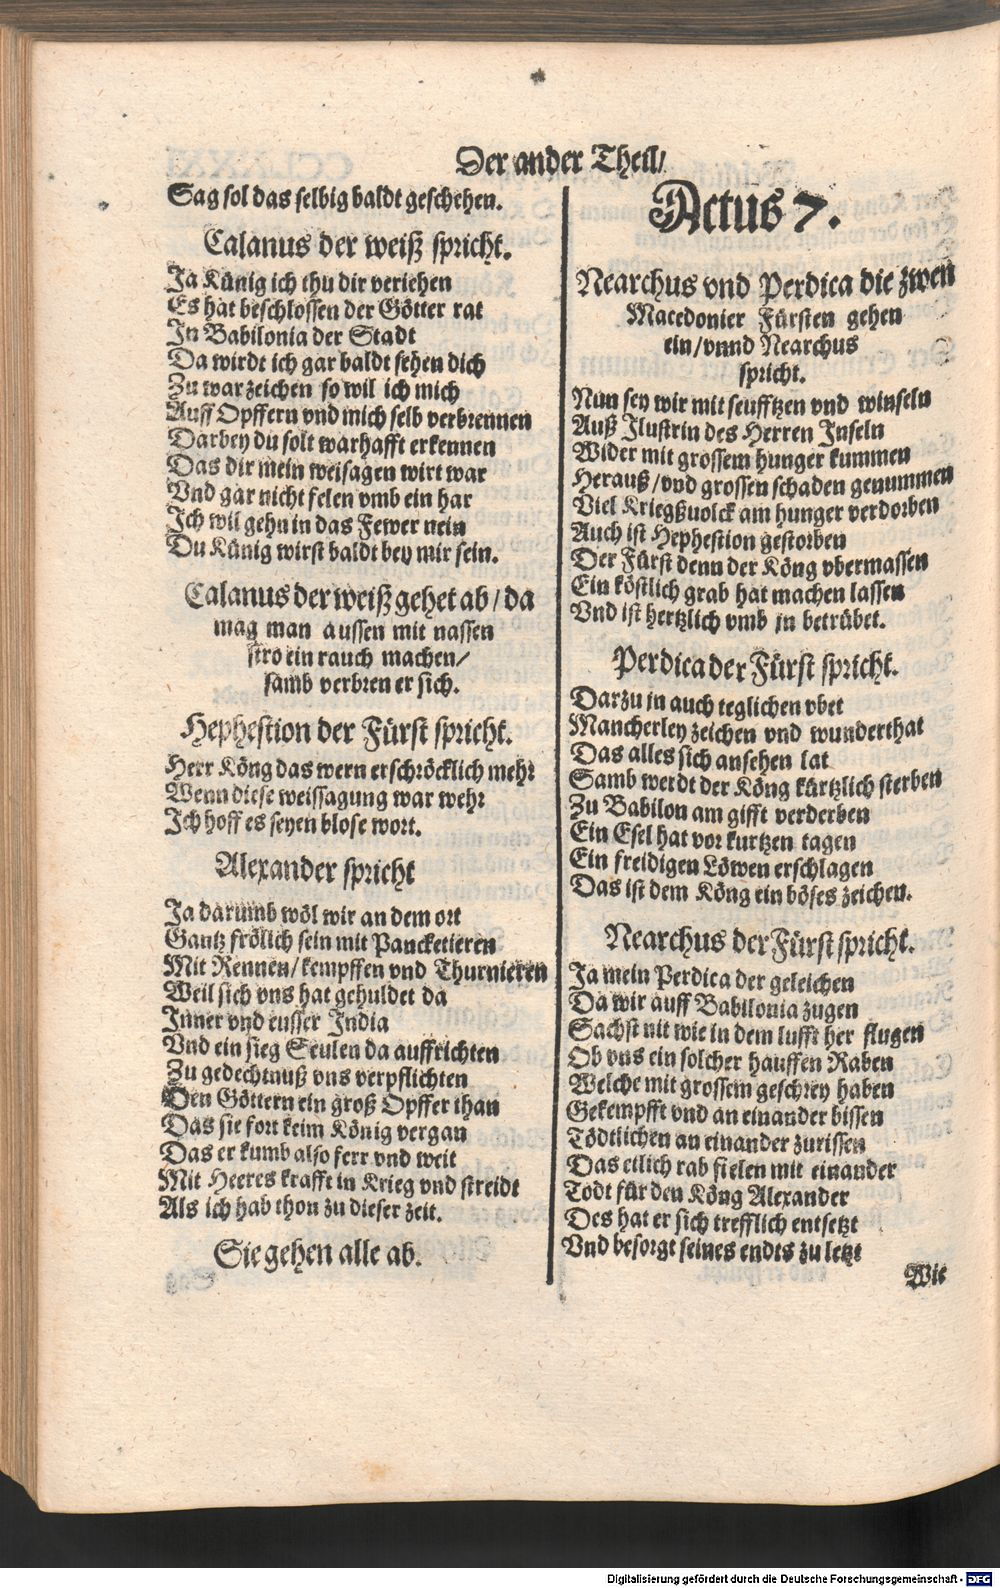 Der ander Theil/
Sag sol das selbig baldt geschehen.
Calanus der weiß spricht.
Ja Künig ich thu dir veriehen
Es hat beschlossen der Götter rat
In Babilonia der Stadt
Da wirdt ich gar baldt sehen dich
Zu warzeichen so wil ich mich
Auff Opffern vnd mich selb verbrennen
Darbey du solt warhafft erkennen
Das dir mein weisagen wirt war
Vnd gar nicht felen vmb ein har
Ich wil gehn in das Fewer nein
Du Künig wirst baldt bey mir sein.
Calanus der weiß gehet ab/da
mag man aussen mit nassen
stro ein rauch machen/
samb verbren er sich.
Hephestion der Fürst spricht.
Herr Köng das wern erschröcklich mehr
Wenn diese weissagung war wehr
Ich hoff es seyen blose wort.
Alexander spricht
Ja darumb wöl wir an dem ort
Gantz frölich sein mit Pancketieren
Mit Rennen/kempffen vnd Thurnieren
Weil sich vns hat gehuldet da
Inner vnd eusser India
Vnd ein sieg Seulen da auffrichten
Zu gedechtnuß vns verpflichten
Den Göttern ein groß Opffer than
Das sie fort keim König vergan
Das er kumb also ferr vnd weit
Mit Heeres krafft in Krieg vnd streidt
Als ich hab thon zu dieser zeit.
Sie gehen alle ab.
Actus 7.
Nearchus vnd Perdica die zwen
Macedonier Fürsten gehen
ein/vnnd Nearchus
spricht.
Nun sey wir mit seufftzen vnd winseln
Auß Ilustrin des Herren Inseln
Wider mit grossem hunger kummen
Herauß/vnd grossen schaden genummen
Viel Kriegßuolck am hunger verdorben
Auch ist Hephestion gestorben
Der Fürst denn der Köng vbermassen
Ein köstlich grab hat machen lassen
Vnd ist hertzlich vmb jn betrübet.
Perdica der Fürst spricht.
Darzu in auch teglichen vbet
Mancherley zeichen vnd wunderthat
Das alles sich ansehen lat
Samb werdt der Köng kürtzlich sterben
Zu Babilon am gifft verderben
Ein Esel hat vor kurtzen tagen
Ein freidigen Löwen erschlagen
Das ist dem Köng ein böses zeichen.
Nearchus der Fürst spricht.
Ja mein Perdica der geleichen
Da wir auff Babilonia zugen
Sachst nit wie in dem lufft her flugen
Ob vns ein solcher hauffen Raben
Welche mit grossem geschrey haben
Gekempfft vnd an einander bissen
Tödtlichen an einander zurissen
Das etlich rab fielen mit einander
Todt für den Köng Alexander
Des hat er sich trefflich entsetzt
Vnd besorgt seines endts zu letzt
Wie
Digitalisierung gefördert durch die Deutsche Forschungsgemeinschaft - DFG